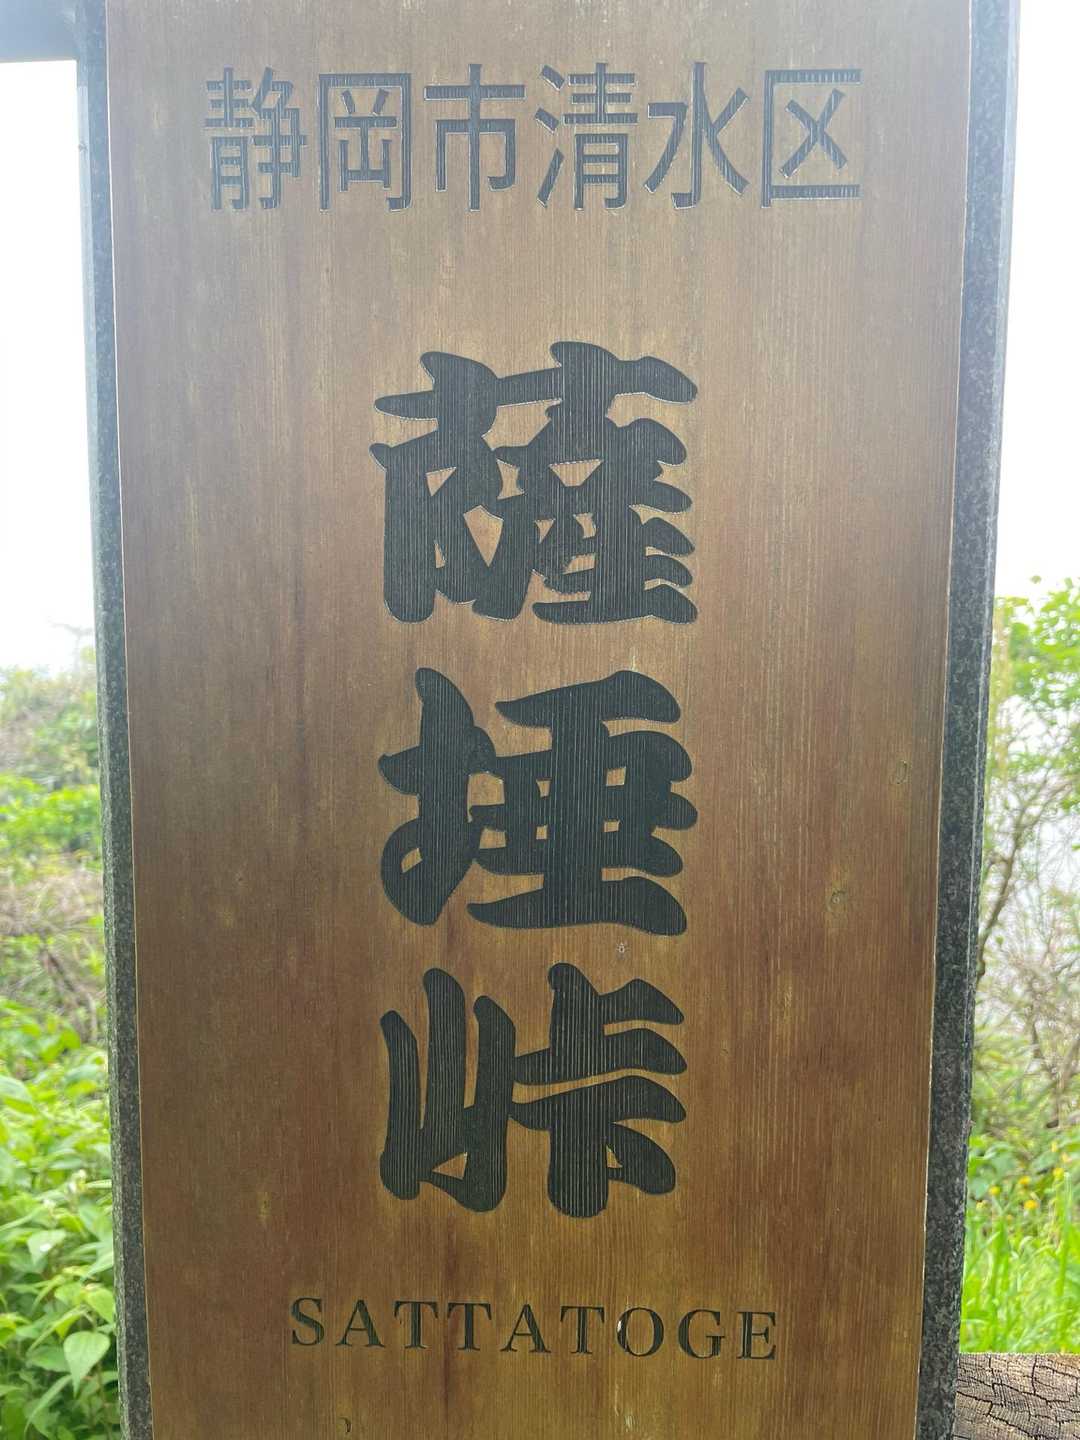 静岡市清水区
薩埵峠
SATTATOGE